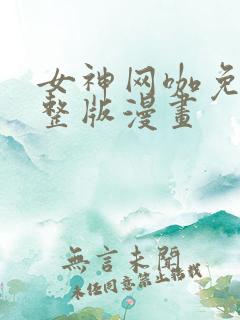 女神网咖免
整版漫畫
無言未閱
未经同意禁止转载